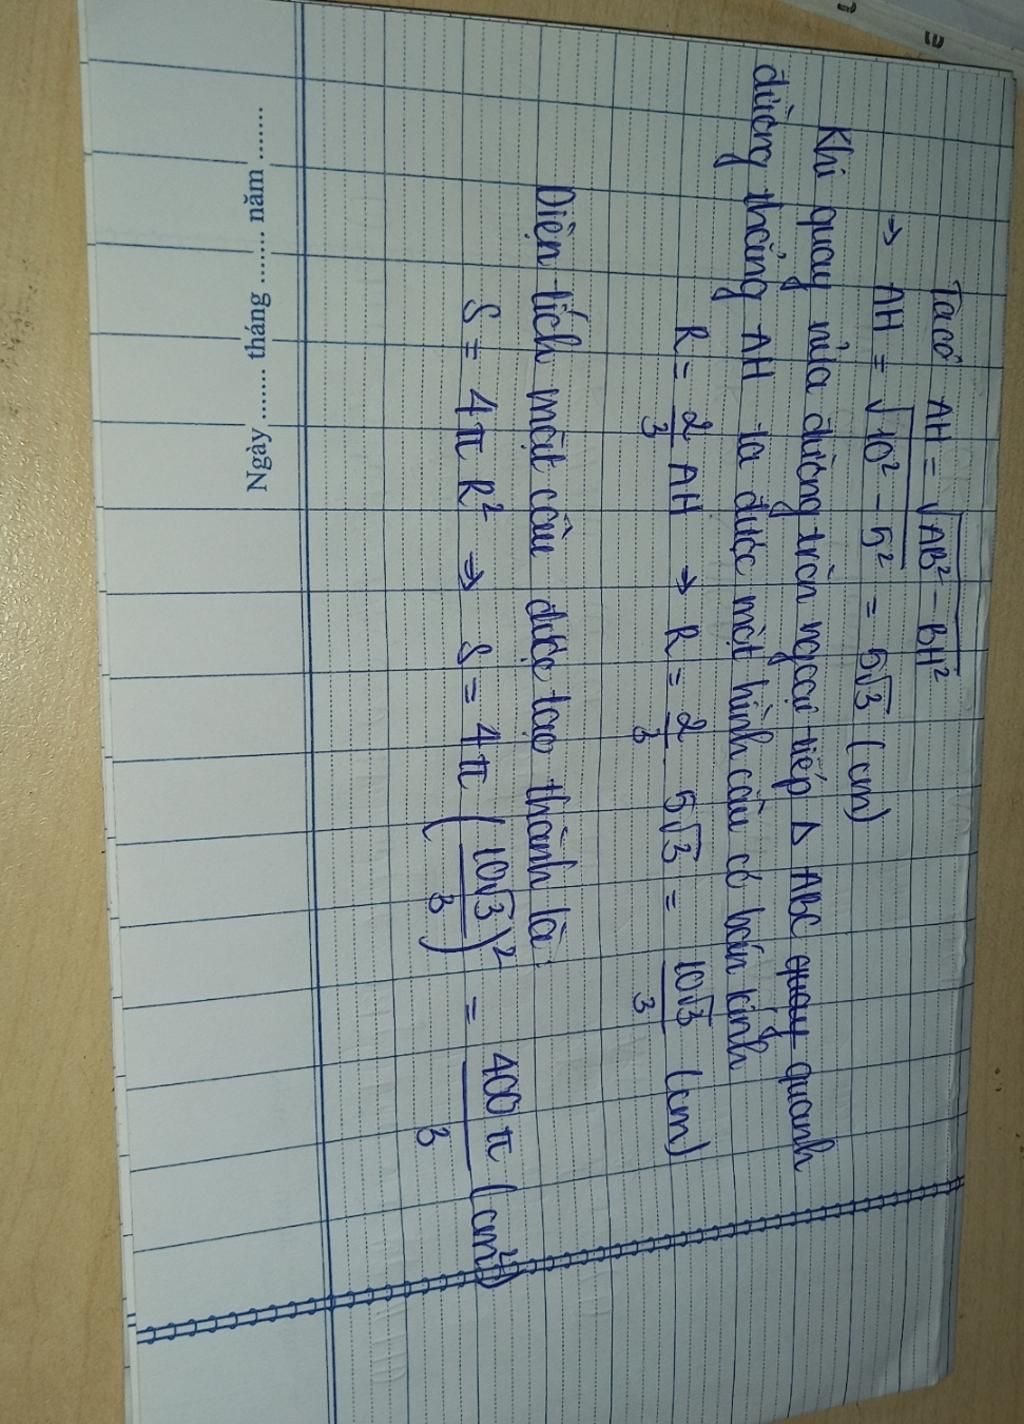 Ta có AH = √AB² - BH²
→ AH = √10² - 5² = 5√3 (cm)
Khi quay nửa đường tròn ngoại tiếp Δ ABC quay quanh
đường thẳng AH ta được một hình cầu có bán kính
R = 2/3 AH → R = 2/3 5√3 = 10√3/3 (cm)
Diện tích mặt cầu được tạo thành là:
S = 4π R² → S = 4π (10√3/3)² = 400π/3 (cm²)
Ngày ....... tháng ....... năm .......